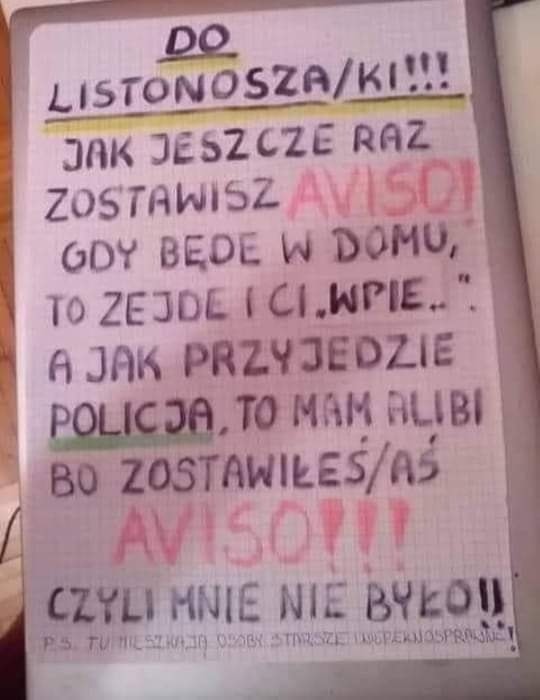 DO
LISTONOSZA/KI!!!
JAK JESZCZE RAZ
ZOSTAWISZ AVISO!
GDY BĘDE W DOMU,
TO ZEJDE I CI „WPIE..".
A JAK PRZYJEDZIE
POLICJA, TO MAM ALIBI
BO ZOSTAWIŁEŚ/AŚ
AVISO!!!
CZYLI MNIE NIE BYŁO!!
P.S. TU MIESZKAJĄ OSOBY STARSZE I NIEPEŁNOSPRAWNE!